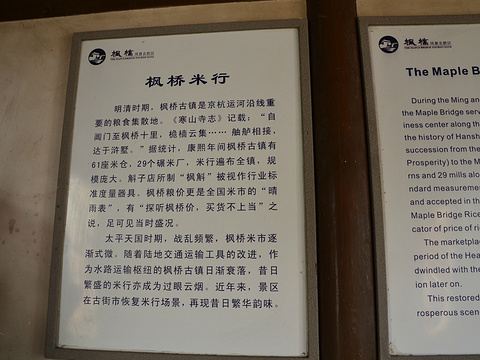 枫桥
枫桥米行
明清时期，枫桥古镇是京杭运河沿线重
要的粮食集散地。《寒山寺志》记载：“自
阊门至枫桥十里，桅樯云集…… 舳舻相接，
达于浒墅。”据统计，康熙年间枫桥古镇有
61座米仓，29个碾米厂，米行遍布全镇，规
模庞大。斛子店所制“枫斛”被视作行业标
准度量器具。枫桥粮价更是全国米市的“晴
雨表”，有“探听枫桥价，买货不上当”之
说，足可见当时盛况。
太平天国时期，战乱频繁，枫桥米市逐
渐式微。随着陆地交通运输工具的改进，作
为水路运输枢纽的枫桥古镇日渐衰落，昔日
繁盛的米行亦成为过眼云烟。近年来，景区
在古街市恢复米行场景，再现昔日繁华韵味。
枫桥
The Maple B
During the Ming an
the Maple Bridge serv
iness center along th
the history of Hansh
succession from the
Prosperity) to the M
rns and 29 mills alo
ndard measuremen
and accepted in th
Maple Bridge Rice
cator of price of ri
The marketplac
period of the Hea
dwindled with the
ion later on.
This restored
rosperous scen